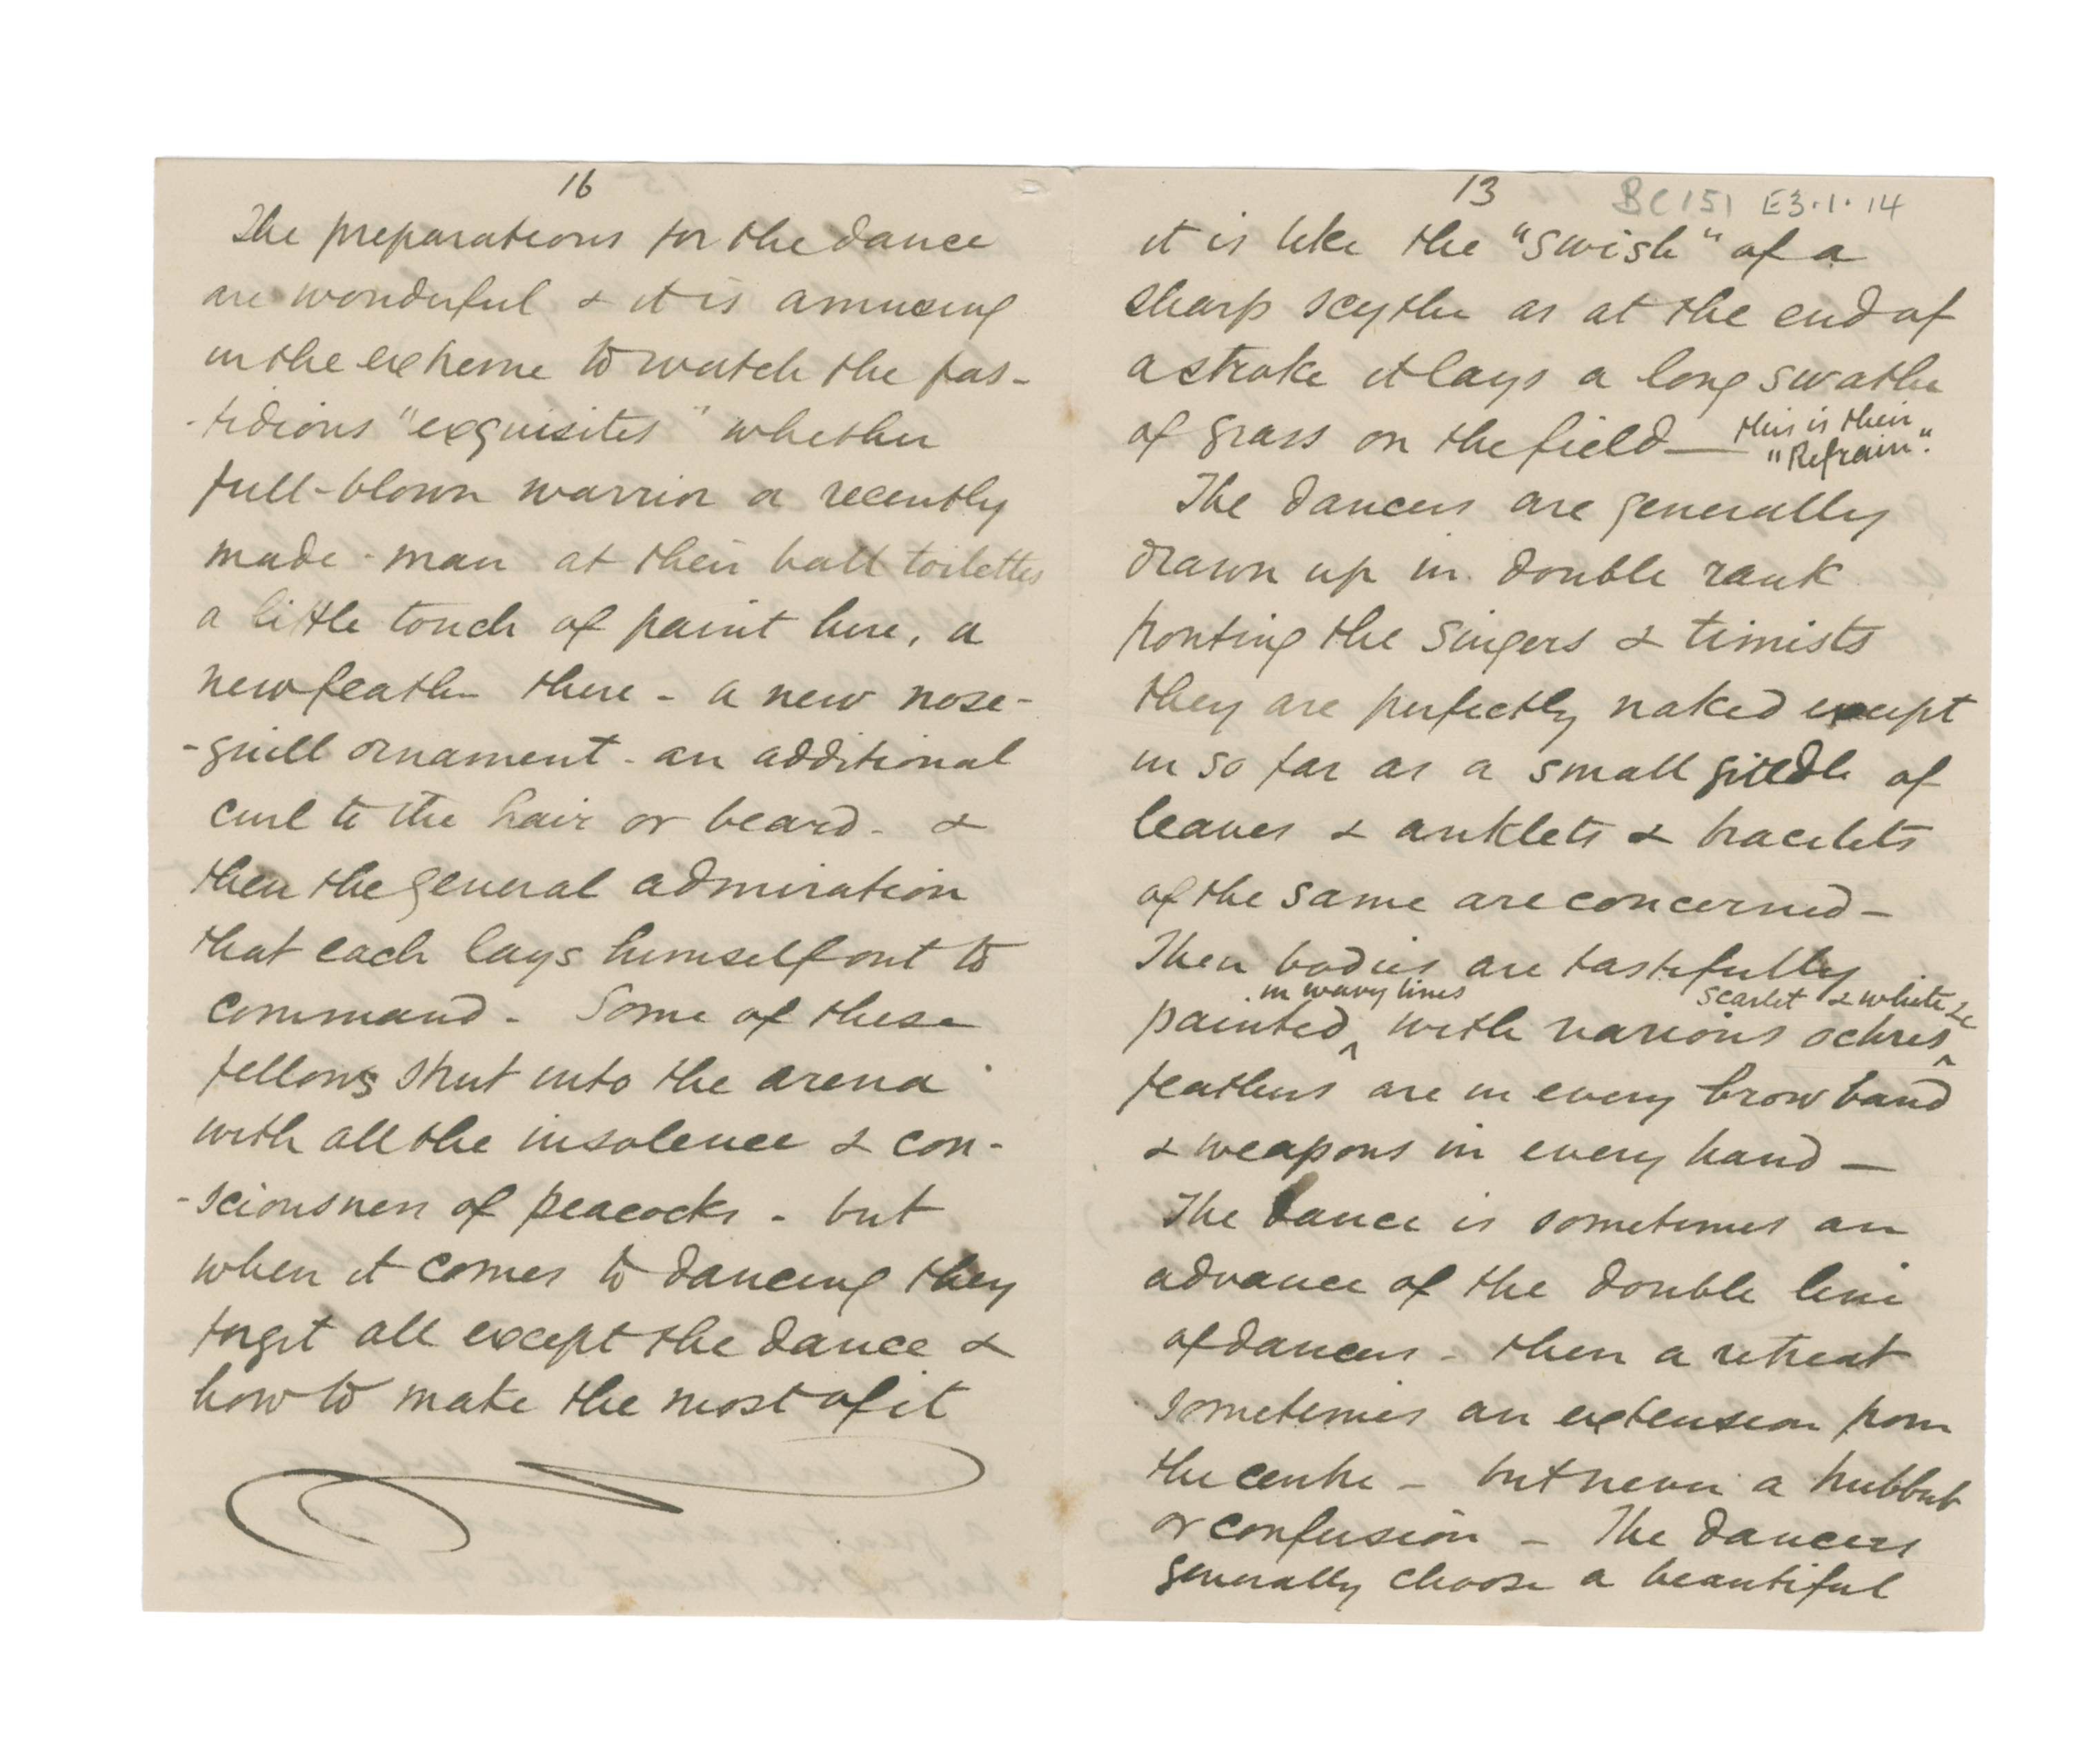 16
The preparations for the dance
are wonderful & it is amusing
in the extreme to watch the fas-
-tidious "exquisites" whether
full-blown warrior or recently
made-man at their ball toilettes
a little touch of paint here, a
new feather there - a new nose-
-quill ornament - an additional
curl to the hair or beard - &
then the general admiration
that each lays himself out to
command - Some of these
fellows strut into the arena
with all the insolence & con-
-sciousness of peacocks - but
when it comes to dancing they
forget all except the dance &
how to make the most of it
13
BC151 E3.1.14
it is like the "swish" of a
sharp scythe as at the end of
a stroke it lays a long swathe
of grass on the field — this is their
"Refrain".
The dancers are generally
drawn up in double rank
fronting the singers & timists
they are perfectly naked except
in so far as a small girdle of
leaves & anklets & bracelets
of the same are concerned —
Their bodies are tastefully
in wavy lines scarlet & white &c
painted ^ with various ochres ^
feathers are in every brow band
& weapons in every hand —
The dance is sometimes an
advance of the double line
of dancers - then a retreat
sometimes an extension from
the centre - but never a hubbub
or confusion - The dancers
generally choose a beautiful